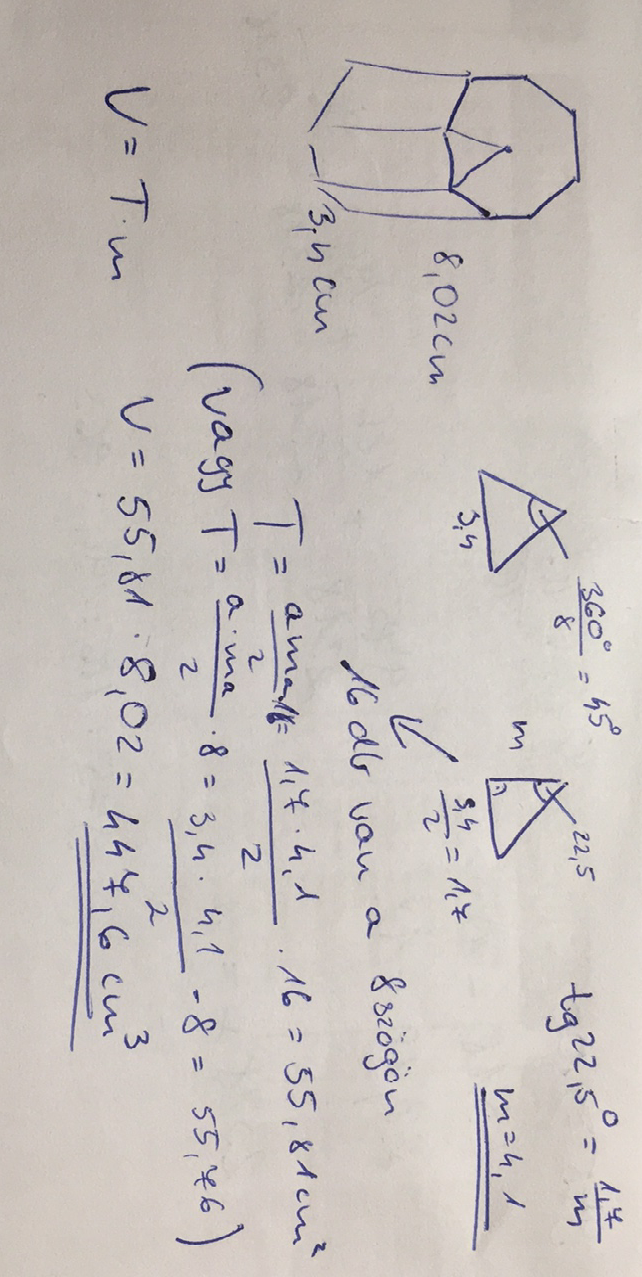 8,02cm
3,4cm
360°/8 = 45°
3,4
22,5
m
3,4/2 = 1,7
tg22,5° = 1,7/m
m=4,1
16 db van a 8szögön
T = a·ma/2 · 16 = 1,7·4,1/2 · 16 = 55,81cm²
(vagy T = a·ma/2 · 8 = 3,4·4,1/2 · 8 = 55,76)
V = T·m
V = 55,81 · 8,02 = 447,6 cm³